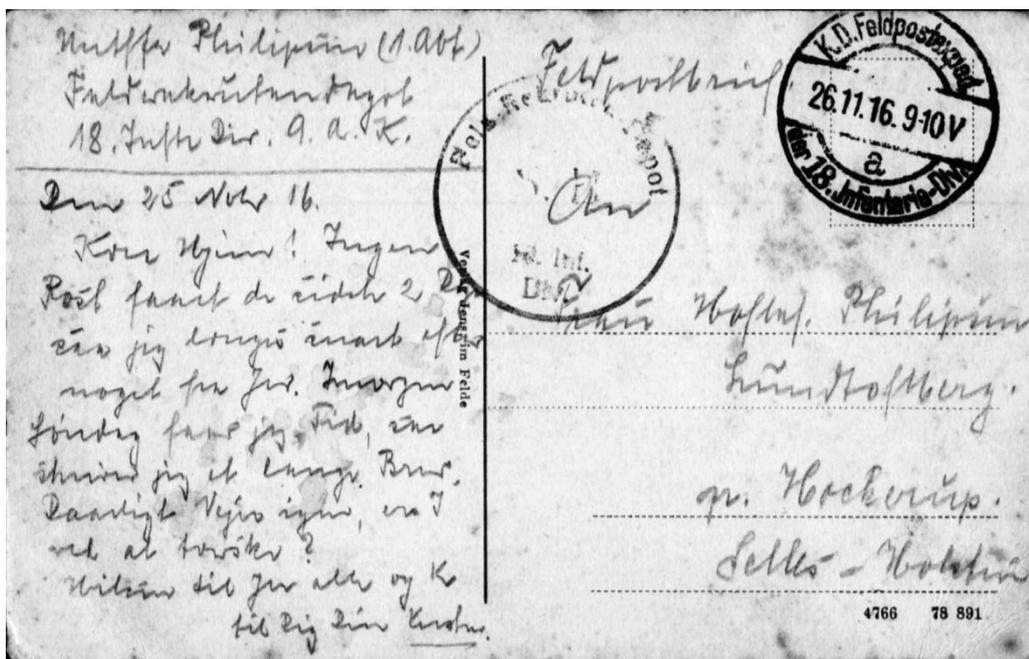 Philipsen (1. Abt)
Feldrekrutendepot
18. Inftr Div. 9. A. K.
Den 25 Novr 16.
Kære Hjem! Ingen
Post faaet de sidste 2 Dage
jeg længes snart efter
noget fra Jer. Imorgen
Söndag faar jeg Tid, saa
skriver jeg et langt Brev.
Daarligt Vejr igen, er I
ved at tærske?
Hilsen til Jer alle og
til Dig Din
Verlag Jensen im Felde
Feldpostbrief.
Feld-Rekruten-Depot
18. Inf.
Div.
K.D. Feldpostexped.
26.11.16. 9-10 V
a
der 18. Infanterie-Div.
An
Frau Hofbes. Philipsen
Lundtoftberg.
p. Hockerup.
Schles-Holstein
4766 78 891